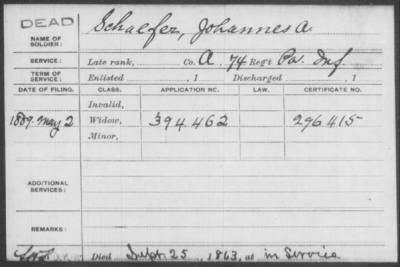 DEAD
NAME OF SOLDIER: Schaefer, Johannes A.
SERVICE: Late rank, Co. A, 74 Reg't Pa. Inf.
TERM OF SERVICE: Enlisted , 1 Discharged , 1
DATE OF FILING. CLASS. APPLICATION NO. LAW. CERTIFICATE NO.
Invalid,
1889. May 2 Widow, 394.462 296.415
Minor,
ADDITIONAL SERVICES:
REMARKS:
Died Sept. 25, 1863, at in Service